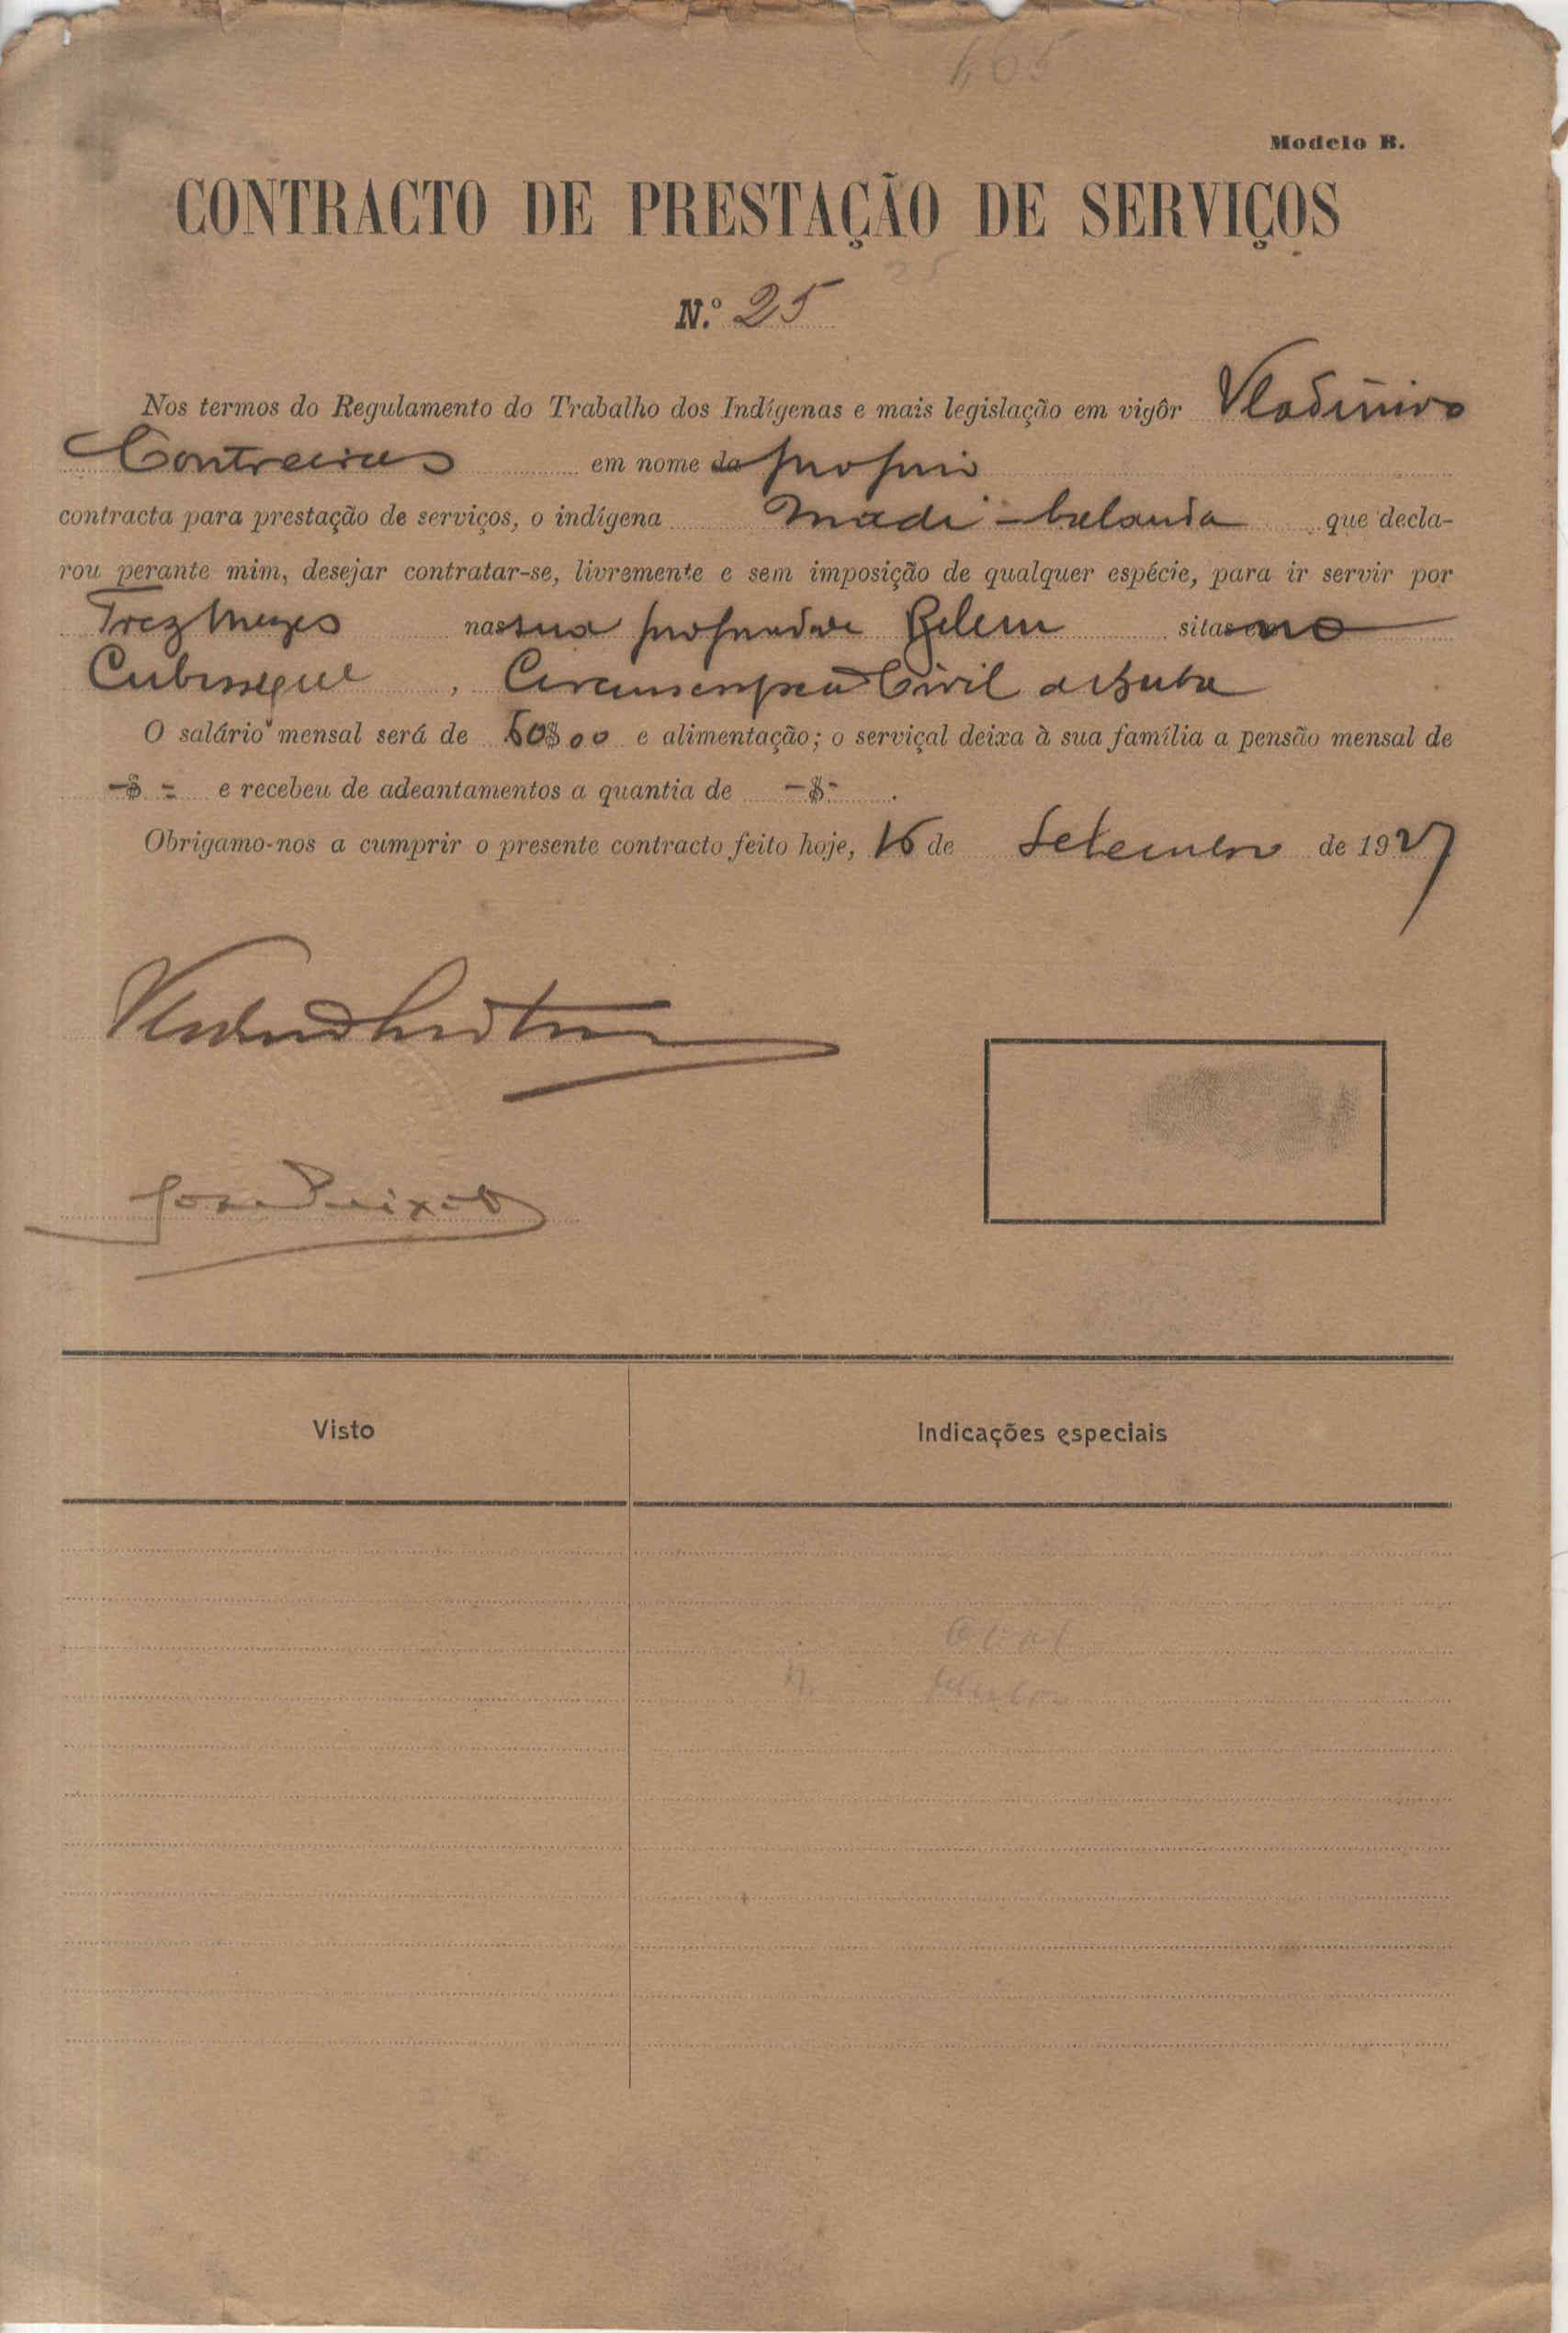 165
Modelo B.
CONTRACTO DE PRESTAÇÃO DE SERVIÇOS
N.º 25
Nos termos do Regulamento do Trabalho dos Indígenas e mais legislação em vigôr Vladimiro
Contreiras em nome da proprio
contracta para prestação de serviços, o indígena Madi-balanda que decla-
rou perante mim, desejar contratar-se, livremente e sem imposição de qualquer espécie, para ir servir por
Trez Mezes nas sua propriedade Belem sitas no
, Circunscripção Civil de Buba
O salário mensal será de 60$00 e alimentação; o serviçal deixa à sua família a pensão mensal de
-$- e recebeu de adeantamentos a quantia de -$-.
Obrigamo-nos a cumprir o presente contracto feito hoje, 16 de Setembro de 1927
José Peixoto
Visto Indicações especiais